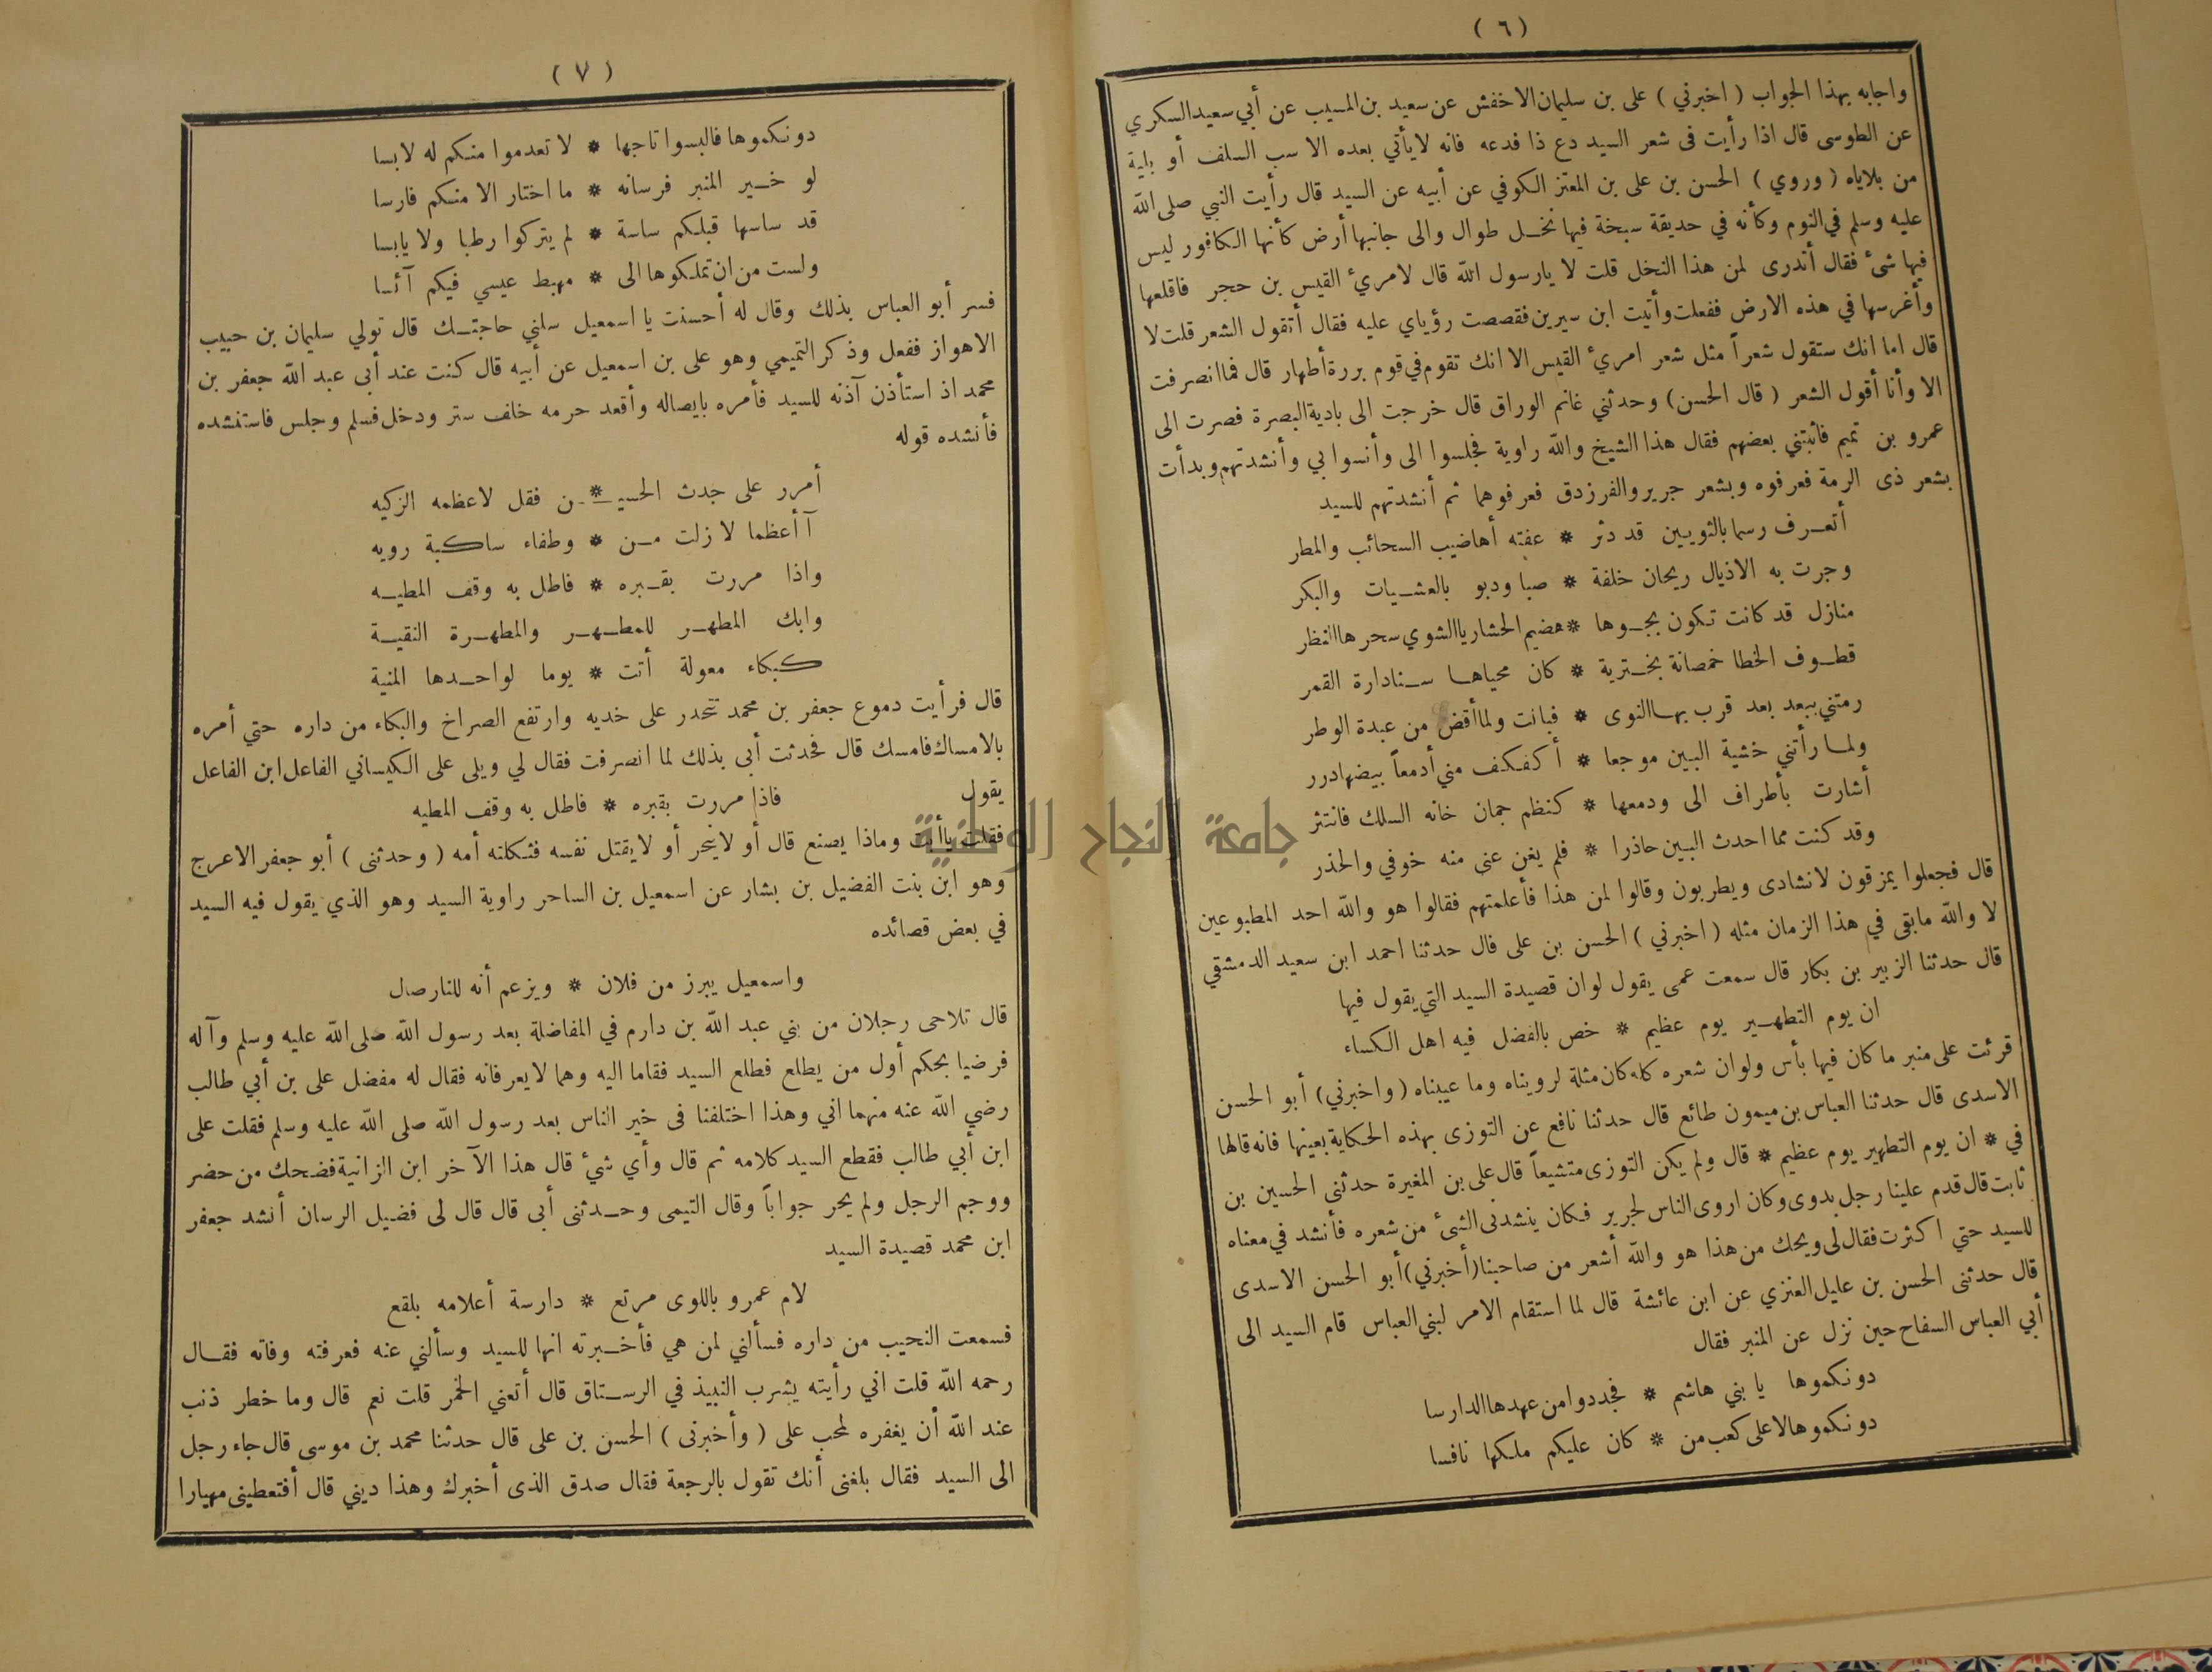 ( ٦ )
واجابه بهذا الجواب ( اخبرني ) على بن سليمان الاخفش عن سعيد بن المسيب عن أبي سعيد السكري
عن الطوسى قال اذا رأيت فى شعر السيد دع ذا فدعه فانه لايأتي بعده الا سب السلف أو بلية
من بلاياه ( وروي ) الحسن بن على بن المعتز الكوفي عن أبيه عن السيد قال رأيت النبي صلى الله
عليه وسلم في النوم وكأنه في حديقة سبخة فيها نخل طوال والى جانبها أرض كأنها الكافور ليس
فيها شئ فقال أتدرى لمن هذا النخل قلت لا يارسول الله قال لامرئ القيس بن حجر فاقلعها
وأغرسها في هذه الارض ففعلت وأتيت ابن سيرين فقصصت رؤياي عليه فقال أتقول الشعر قلت لا
قال اما انك ستقول شعراً مثل شعر امرئ القيس الا انك تقوم في قوم بررة أطهار قال فما انصرفت
الا وأنا أقول الشعر ( قال الحسن ) وحدثني غانم الوراق قال خرجت الى بادية البصرة فصرت الى
عمرو بن تميم فاثبتني بعضهم فقال هذا الشيخ والله راوية فجلسوا الى وأنسوا بي وأنشدتهم وبدأت
بشعر ذى الرمة فعرفوه وبشعر جرير والفرزدق فعرفوهما ثم أنشدتهم للسيد
أتعرف رسما بالثويين قد دثر * عفته أهاضيب السحائب والمطر
وجرت به الاذيال ريحان خلفة * صبا ودبو بالعشيات والبكر
منازل قد كانت تكون بجوها * هضيم الحشا ريا الشوي سحرها النظر
قطوف الخطا خمصانة بخترية * كان محياها سنا دارة القمر
رمتني ببعد بعد قرب بها النوى * فبانت ولما أقض من عبدة الوطر
ولما رأتني خشية البين موجعا * أكفكف مني أدمعاً بيضها درر
أشارت بأطراف الى ودمعها * كنظم جمان خانه السلك فانتثر
وقد كنت مما احدث البين حاذرا * فلم يغن عنى منه خوفي والحذر
قال فجعلوا يمزقون لانشادى ويطربون وقالوا لمن هذا فأعلمتهم فقالوا هو والله احد المطبوعين
لا والله مابقى في هذا الزمان مثله ( اخبرني ) الحسن بن على قال حدثنا احمد ابن سعيد الدمشقي
قال حدثنا الزبير بن بكار قال سمعت عمى يقول لو ان قصيدة السيد التي يقول فيها
ان يوم التطهير يوم عظيم * خص بالفضل فيه اهل الكساء
قرئت على منبر ما كان فيها بأس ولو ان شعره كله كان مثلة لرويناه وما عيبناه ( واخبرني ) أبو الحسن
الاسدى قال حدثنا العباس بن ميمون طائع قال حدثنا نافع عن التوزى بهذه الحكاية بعينها فانه قالها
في * ان يوم التطهير يوم عظيم * قال ولم يكن التوزى متشيعاً قال على بن المغيرة حدثنى الحسين بن
ثابت قال قدم علينا رجل بدوى وكان اروى الناس لجرير فكان ينشدنى الشئ من شعره فأنشد في معناه
للسيد حتي اكثرت فقال لى ويحك من هذا هو والله أشعر من صاحبنا ( أخبرني ) أبو الحسن الاسدى
قال حدثنى الحسن بن عليل العنزي عن ابن عائشة قال لما استقام الامر لبني العباس قام السيد الى
أبي العباس السفاح حين نزل عن المنبر فقال
دونكموها يا بني هاشم * فجددوا من عهدها الدارسا
دونكموها لاعلى كعب من * كان عليكم ملكها نافسا
( ٧ )
دونكموها فالبسوا تاجها * لا تعدموا منكم له لابسا
لو خير المنبر فرسانه * ما اختار الا منكم فارسا
قد ساسها قبلكم ساسة * لم يتركوا رطبا ولا يابسا
ولست من ان تملكوها الى * مهبط عيسي فيكم آئسا
فسر أبو العباس بذلك وقال له أحسنت يا اسمعيل سلني حاجتك قال تولي سليمان بن حبيب
الاهواز ففعل وذكر التميمي وهو على بن اسمعيل عن أبيه قال كنت عند أبى عبد الله جعفر بن
محمد اذ استأذن آذنه للسيد فأمره بايصاله وأقعد حرمه خلف ستر ودخل فسلم وجلس فاستنشده
فأنشده قوله
أمرر على جدث الحسيـ * ـن فقل لاعظمه الزكيه
آ أعظما لا زلت من * وطفاء ساكبة رويه
واذا مررت بقبره * فاطل به وقف المطيه
وابك المطهر للمطهر والمطهرة النقية
كبكاء معولة أتت * يوما لواحدها المنية
قال فرأيت دموع جعفر بن محمد تتحدر على خديه وارتفع الصراخ والبكاء من داره حتي أمره
بالامساك فامسك قال فحدثت أبى بذلك لما انصرفت فقال لي ويلى على الكيساني الفاعل ابن الفاعل
يقول فاذا مررت بقبره * فاطل به وقف المطيه
فقلت ياأبت وماذا يصنع قال أو لاينحر أو لايقتل نفسه فثكلته أمه ( وحدثنى ) أبو جعفر الاعرج
وهو ابن بنت الفضيل بن بشار عن اسمعيل بن الساحر راوية السيد وهو الذي يقول فيه السيد
في بعض قصائده
واسمعيل يبرز من فلان * ويزعم أنه للنار صال
قال تلاحى رجلان من بني عبد الله بن دارم في المفاضلة بعد رسول الله صلى الله عليه وسلم وآله
فرضيا بحكم أول من يطلع فطلع السيد فقاما اليه وهما لا يعرفانه فقال له مفضل على بن أبي طالب
رضي الله عنه منهما اني وهذا اختلفنا فى خير الناس بعد رسول الله صلى الله عليه وسلم فقلت على
ابن أبي طالب فقطع السيد كلامه ثم قال وأي شئ قال هذا الآخر ابن الزانية فضحك من حضر
ووجم الرجل ولم يحر جواباً وقال التيمى وحدثنى أبى قال قال لى فضيل الرسان أنشد جعفر
ابن محمد قصيدة السيد
لام عمرو باللوى مربع * دارسة أعلامه بلقع
فسمعت النحيب من داره فسألني لمن هي فأخبرته انها للسيد وسألني عنه فعرفته وفاته فقال
رحمه الله قلت اني رأيته يشرب النبيذ في الرستاق قال أتعني الخمر قلت نعم قال وما خطر ذنب
عند الله أن يغفره لمحب على ( وأخبرنى ) الحسن بن على قال حدثنا محمد بن موسى قال جاء رجل
الى السيد فقال بلغنى أنك تقول بالرجعة فقال صدق الذى أخبرك وهذا ديني قال أفتعطينى مهيارا
جامعة النجاح الوطنية